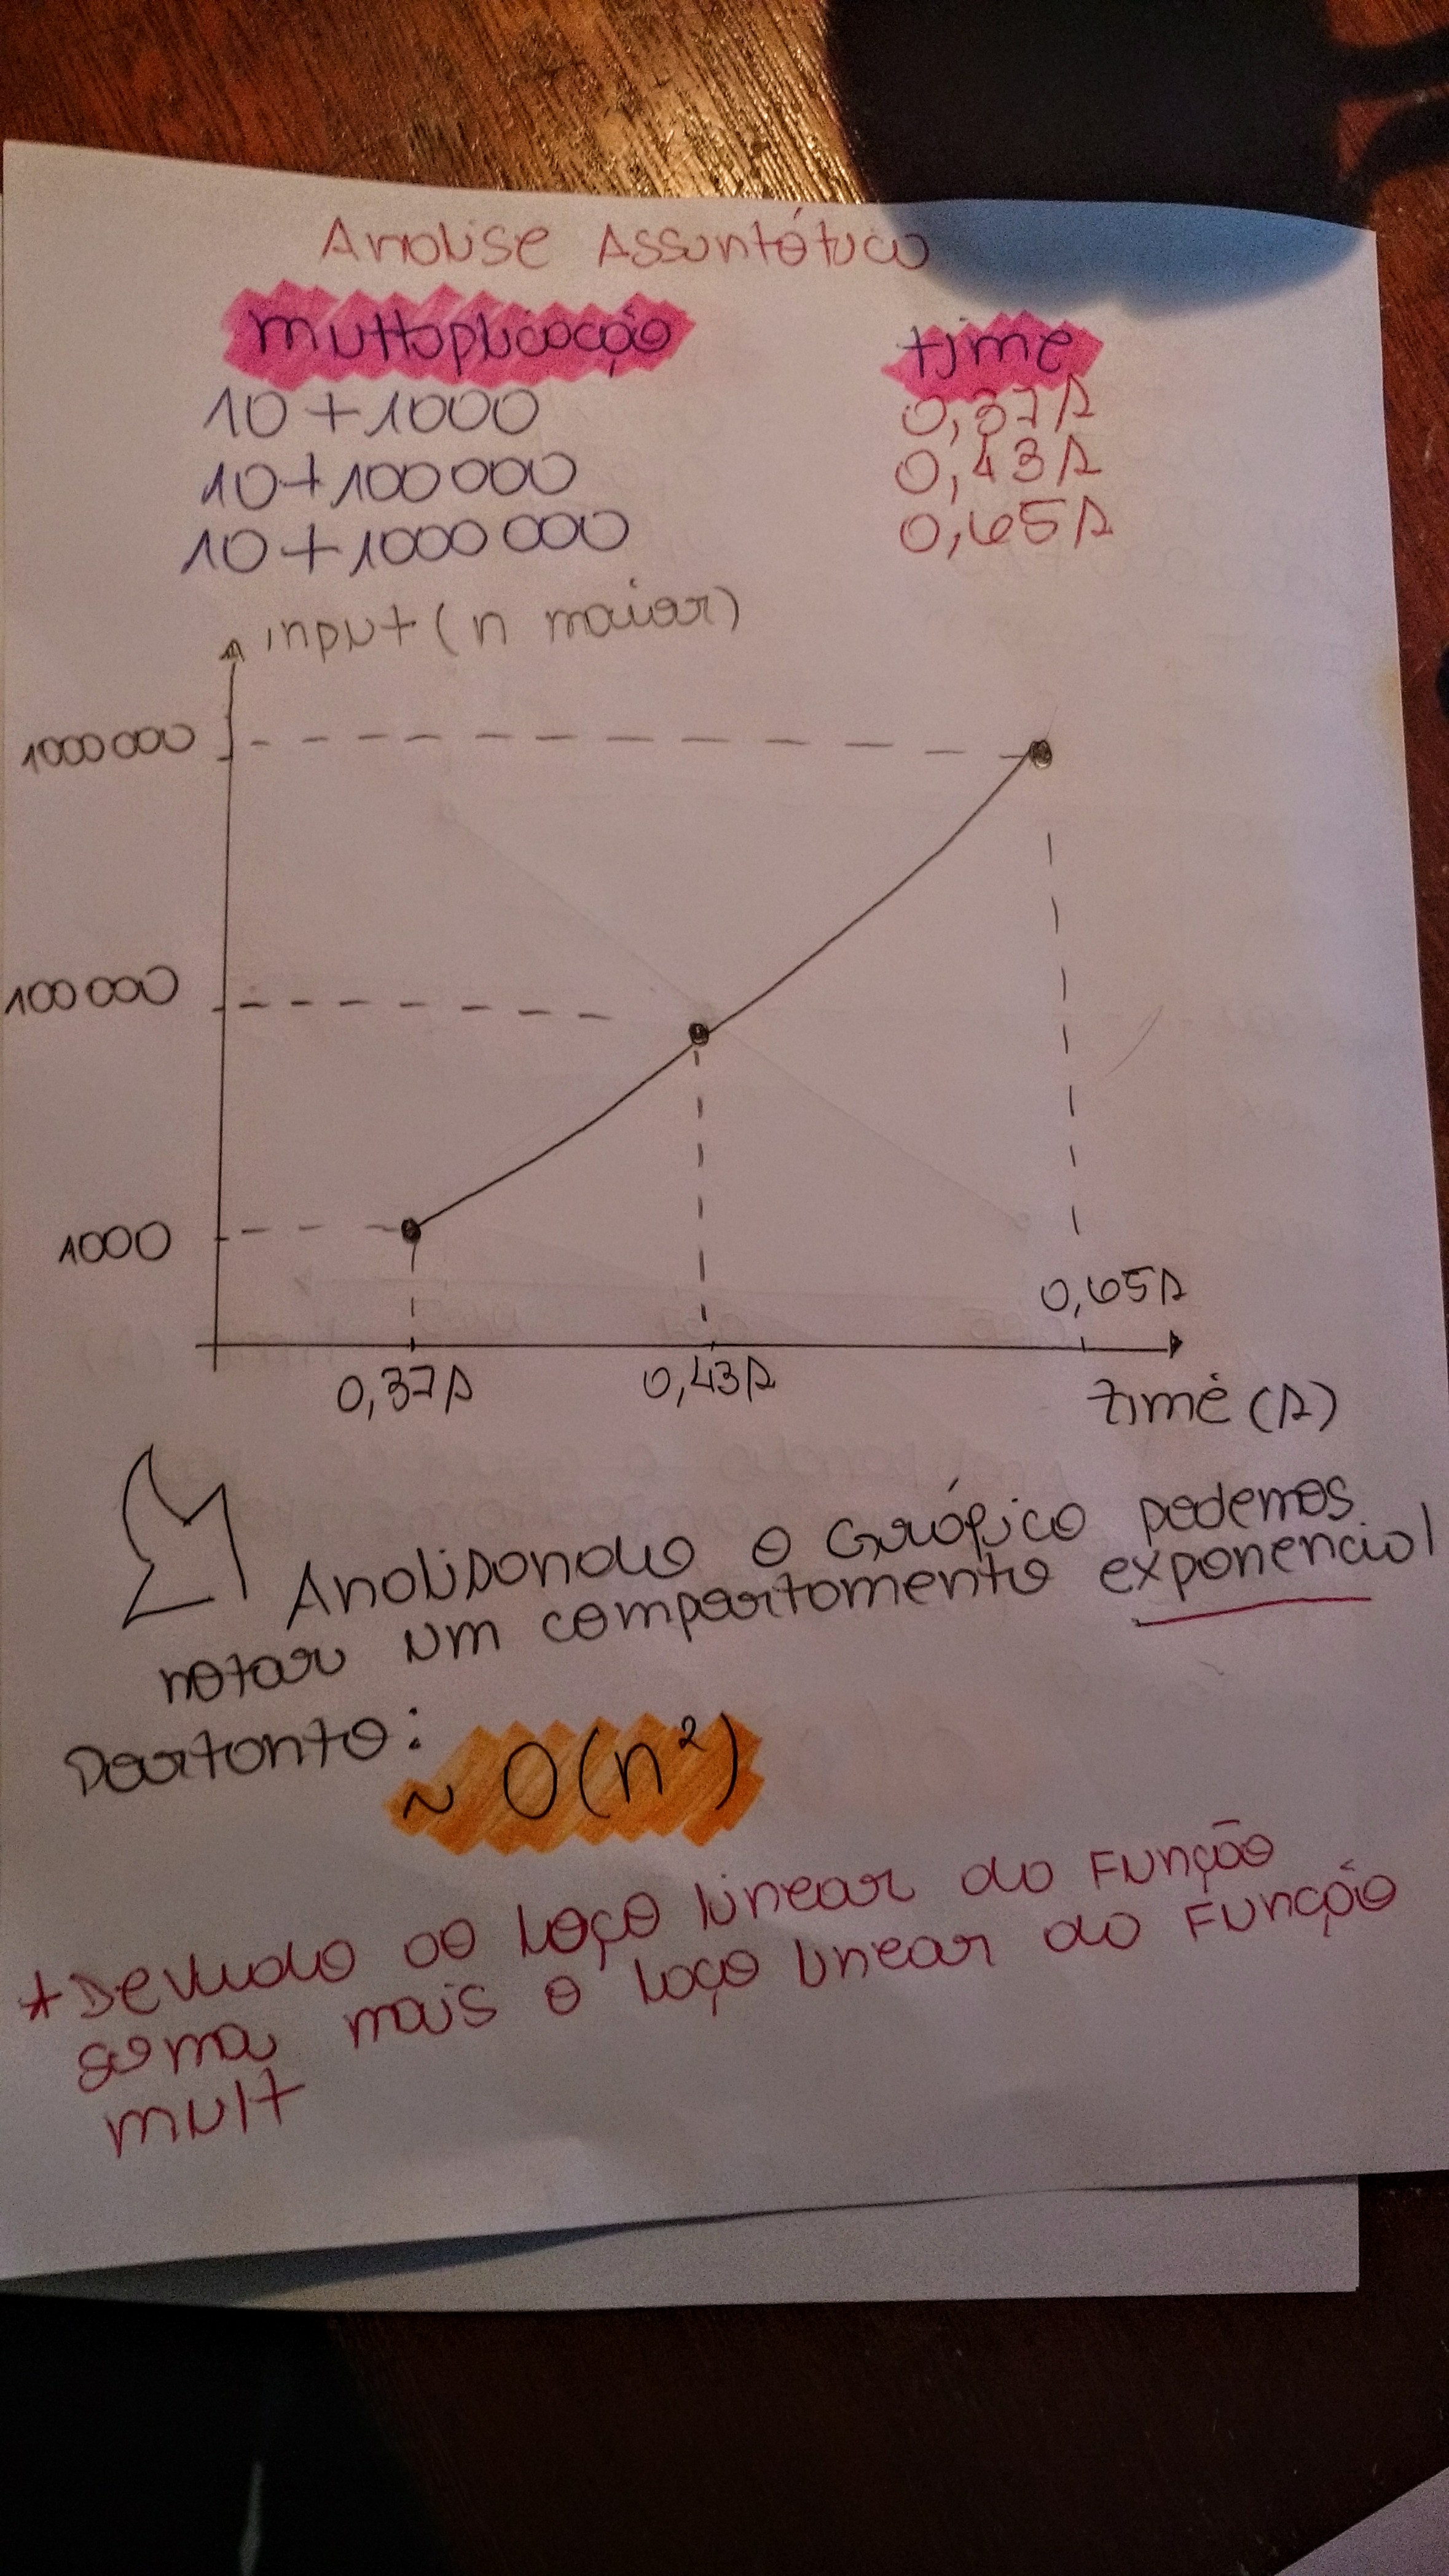 Analise Assintótica
multiplicação time
10 + 1000 0,37s
10 + 100 000 0,43s
10 + 1000 000 0,65s
input (n maior)
1000 000
100 000
1000
0,65s
0,37s 0,43s
time (s)
Analisando o Gráfico podemos
notar um comportamento exponencial
Portanto:
~ O(n²)
* Devido ao Laço linear da Função
soma mais o laço linear da Função
mult